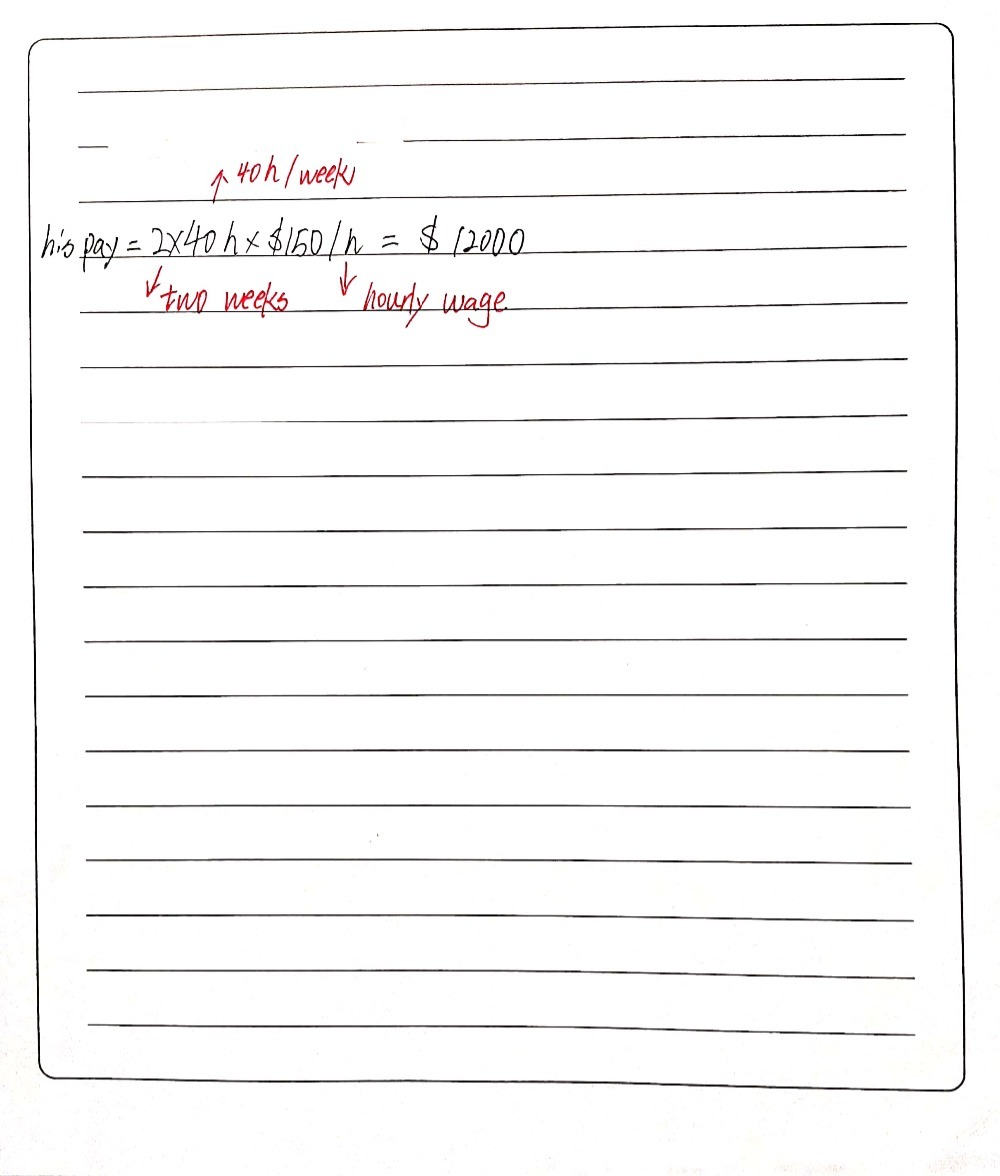 ↑ 40h/week
his pay = 2×40 h × $150/h = $ 12000
↓ two weeks ↓ hourly wage